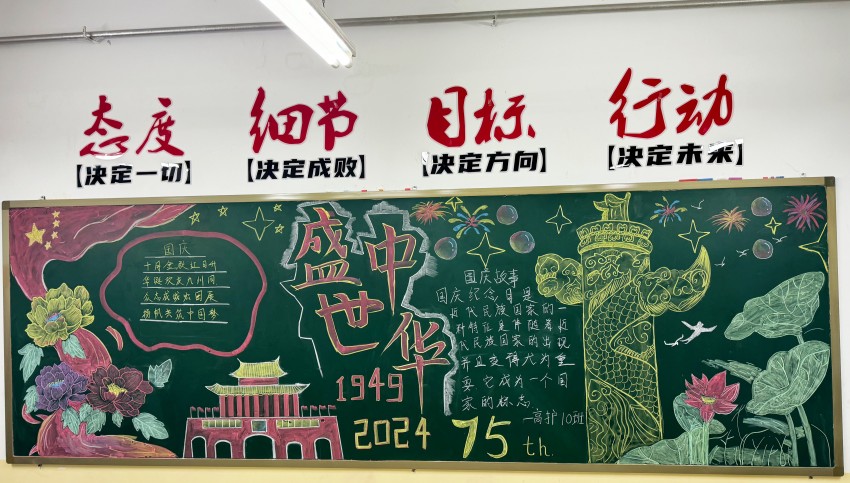 态度 细节 目标 行动
【决定一切】 【决定成败】 【决定方向】 【决定未来】
国庆
十月金秋红日升
华诞欢天九州同
众志成城如团庆
扬帆共筑中国梦
盛世
中华
1949
2024
75th.
国庆故事
国庆纪念日是
近代民族国家的一
种特征是伴随着近
代民族国家的出现
并且变得尤为重
要它成为一个国
家的标志
—高护10班